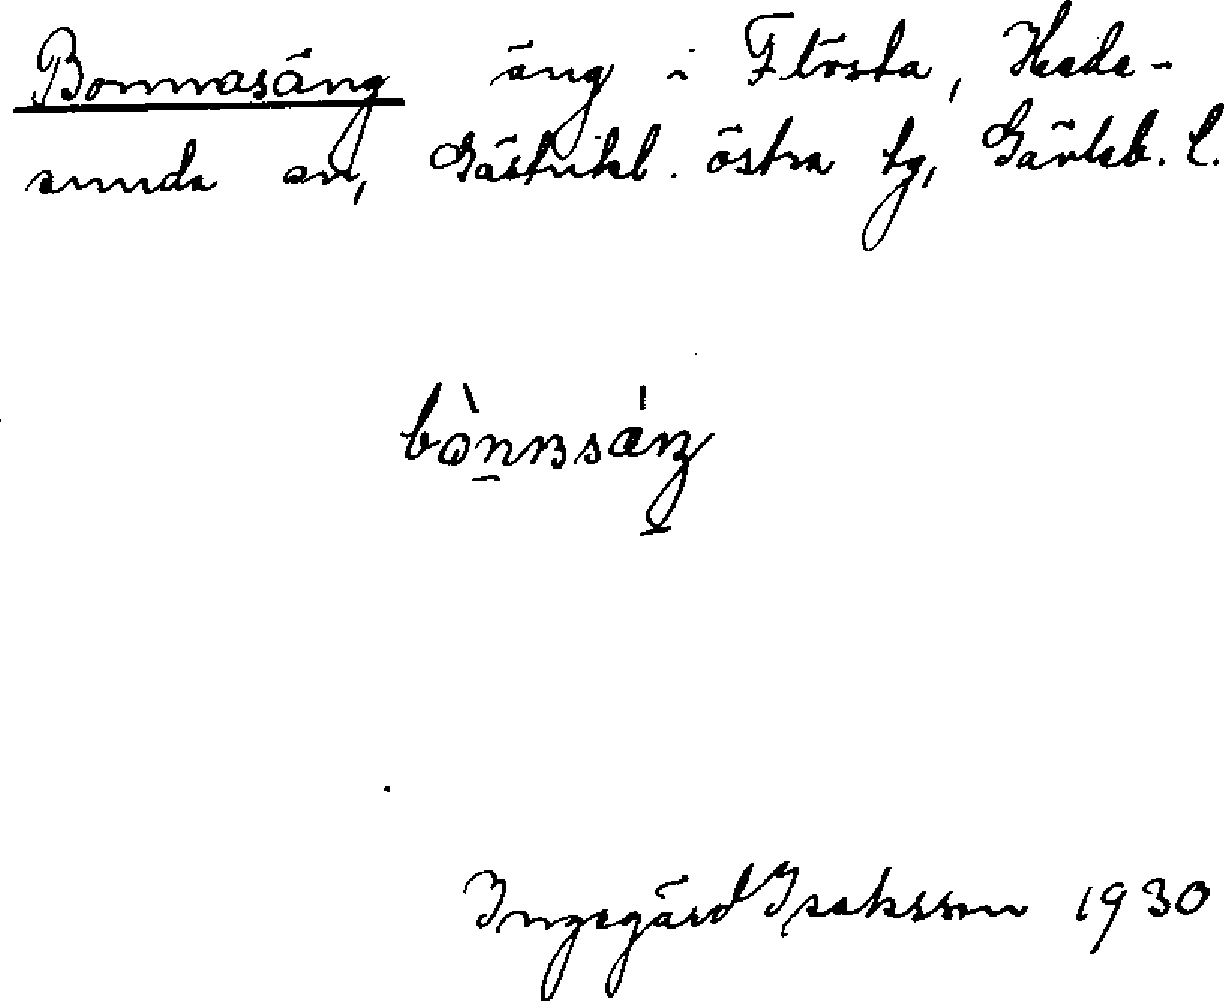 Bonnasäng äng i Flösta, Heda-
sunda sn, Gästrikl. östra tg, Gävleb. l.
bònnasáŋ
Ingegärd Isaksson 1930